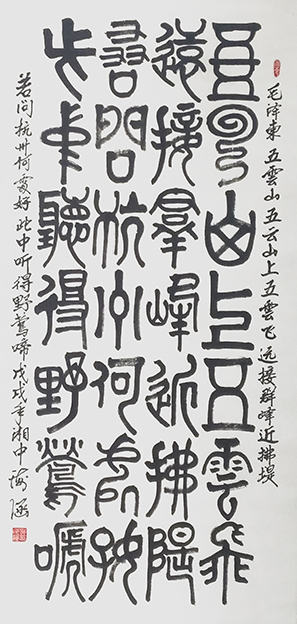 毛泽東 五雲山 五云山上五雲飞 远接群峰近拂堤
五云山上五雲飛
遠接羣峰近拂隄
若問杭州何處好
此中聽得野鶯嗁
若问杭州何處好此中听得野莺啼戊戌年湘中